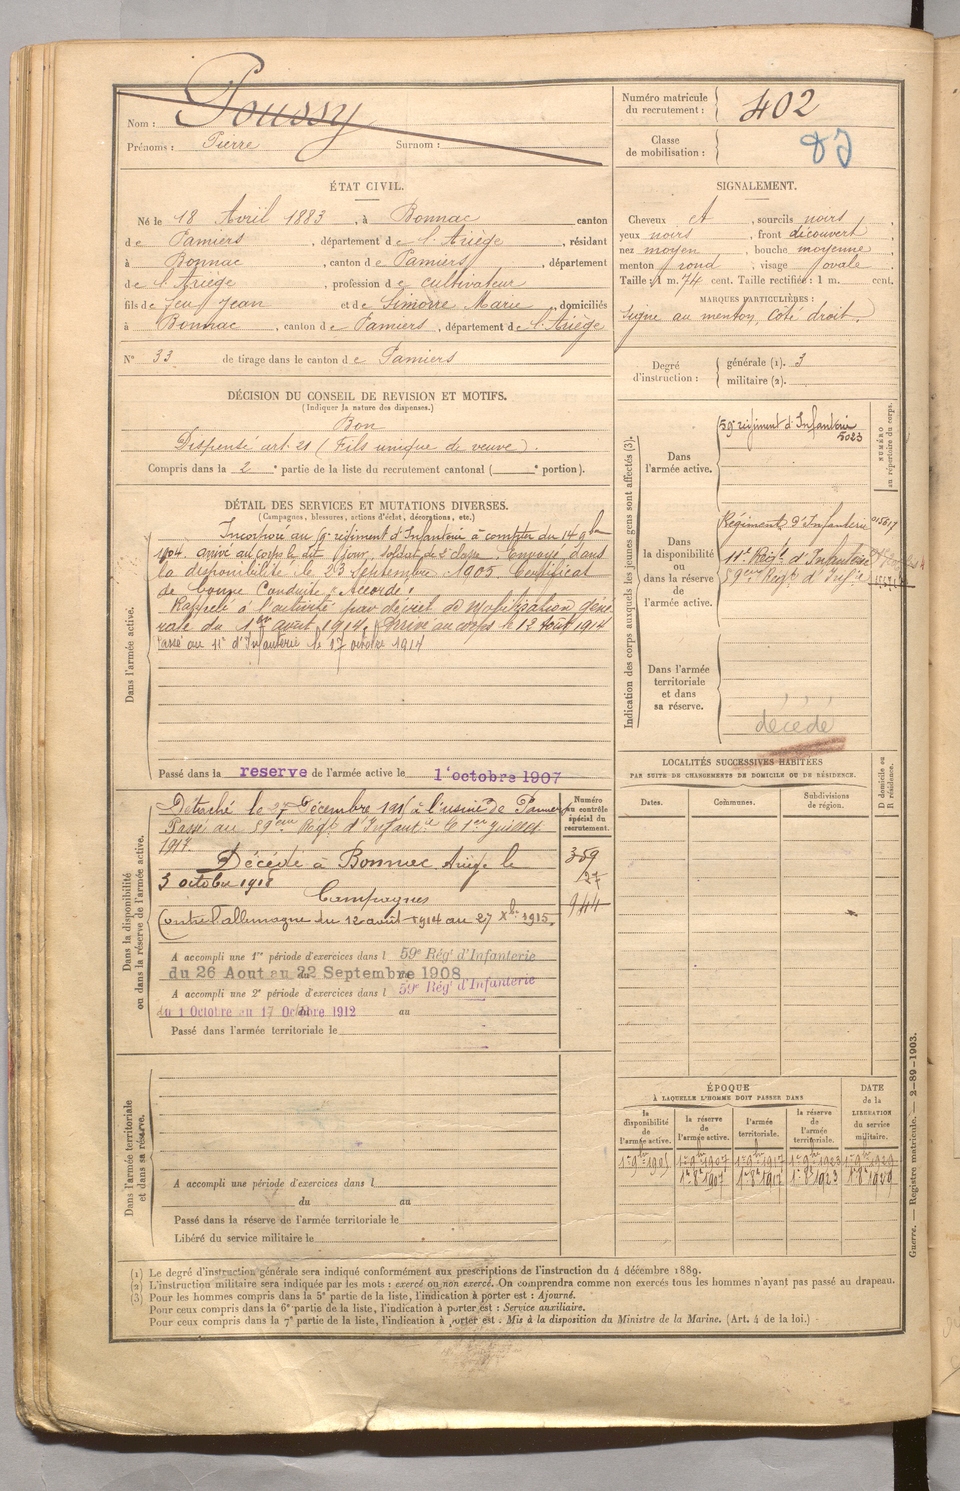 Nom : Poussy
Prénoms : Pierre Surnom :
Numéro matricule du recrutement : 402
Classe de mobilisation :
ÉTAT CIVIL.
Né le 18 Avril 1883, à Bonnac canton
de Pamiers, département de l'Ariège, résidant
à Bonnac, canton de Pamiers, département
de l'Ariège, profession de cultivateur
fils de feu Jean et de Simorre Marie, domiciliés
à Bonnac, canton de Pamiers, département de l'Ariège
N° 33 de tirage dans le canton de Pamiers
SIGNALEMENT.
Cheveux et, sourcils noirs,
yeux noirs, front découvert,
nez moyen, bouche moyenne,
menton rond, visage ovale.
Taille : 1 m. 74 cent. Taille rectifiée : 1 m. cent.
MARQUES PARTICULIÈRES :
Signe au menton, côté droit.
Degré d'instruction : générale (1). 3
militaire (2).
DÉCISION DU CONSEIL DE REVISION ET MOTIFS.
(Indiquer la nature des dispenses.)
Bon
Dispensé art. 21 (Fils unique de veuve)
Compris dans la 2e partie de la liste du recrutement cantonal ( e portion).
DÉTAIL DES SERVICES ET MUTATIONS DIVERSES.
(Campagnes, blessures, actions d'éclat, décorations, etc.)
Dans l'armée active.
Incorporé au régiment d'Infanterie à compter du 14 9bre
1904. arrivé au corps le dit jour, soldat de 2e classe. Envoyé dans
la disponibilité le 23 Septembre 1905. Certificat
de bonne Conduite "Accordé".
Rappelé à l'activité par décret de Mobilisation géné-
rale du 1er août 1914. Arrivé au corps le 12 Août 1914
Passé au 11e d'Infanterie le 17 octobre 1914
Passé dans la reserve de l'armée active le 1er octobre 1907
Indication des corps auxquels les jeunes gens sont affectés (3).
NUMÉRO au répertoire du corps.
Dans l'armée active.
59e régiment d'Infanterie
5023
Dans la disponibilité ou dans la réserve de l'armée active.
Régiment d'Infanterie 015617
11e Régt d'Infanterie
59eme Régt d'Infie
Dans l'armée territoriale et dans sa réserve.
décédé
LOCALITÉS SUCCESSIVES HABITÉES
PAR SUITE DE CHANGEMENTS DE DOMICILE OU DE RÉSIDENCE.
Dates. Communes. Subdivisions de région. D domicile ou R résidence.
Dans la disponibilité ou dans la réserve de l'armée active.
Numéro au contrôle spécial du recrutement.
Détaché le 27 Décembre 1915 à l'usine de Pamiers
Passé au 59eme Régt d'Infantie le 1er juillet
1917.
Décédé à Bonnac Ariège le
3 octobre 1918
Campagnes
Contre l'allemagne du 12 août 1914 au 27 Xbre 1915.
359
27
944
A accompli une 1re période d'exercices dans l 59e Rég' d'Infanterie
du 26 Aout au 22 Septembre 1908
A accompli une 2e période d'exercices dans l 59e Rég' d'Infanterie
du 1 Octobre au 17 Octobre 1912 au
Passé dans l'armée territoriale le
Dans l'armée territoriale et dans sa réserve.
A accompli une période d'exercices dans l
du au
Passé dans la réserve de l'armée territoriale le
Libéré du service militaire le
ÉPOQUE
À LAQUELLE L'HOMME DOIT PASSER DANS
la disponibilité de l'armée active.
la réserve de l'armée active.
l'armée territoriale.
la réserve de l'armée territoriale.
DATE de la LIBÉRATION du service militaire.
1er 9bre 1905 1er 9bre 1907 1er 9bre 1917 1er 9bre 1923 1er 9bre 1929
1er 8bre 1907 1er 8bre 1917 1er 8bre 1923 1er 8bre 1929
Guerre. — Registre matricule. — 2-89-1903.
(1) Le degré d'instruction générale sera indiqué conformément aux prescriptions de l'instruction du 4 décembre 1889.
(2) L'instruction militaire sera indiquée par les mots : exercé ou non exercé. On comprendra comme non exercés tous les hommes n'ayant pas passé au drapeau.
(3) Pour les hommes compris dans la 5e partie de la liste, l'indication à porter est : Ajourné.
Pour ceux compris dans la 6e partie de la liste, l'indication à porter est : Service auxiliaire.
Pour ceux compris dans la 7e partie de la liste, l'indication à porter est : Mis à la disposition du Ministre de la Marine. (Art. 4 de la loi.)